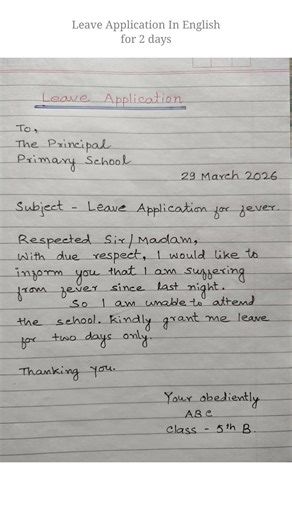 Leave Application In English
for 2 days
Leave Application
To,
The Principal
Primary School
29 March 2026
Subject - Leave Application for fever.
Respected Sir/Madam,
With due respect, I would like to
inform you that I am suffering
from fever since last night.
So I am unable to attend
the school. Kindly grant me leave
for two days only.
Thanking You.
Your obediently
ABC
Class - 5th B.